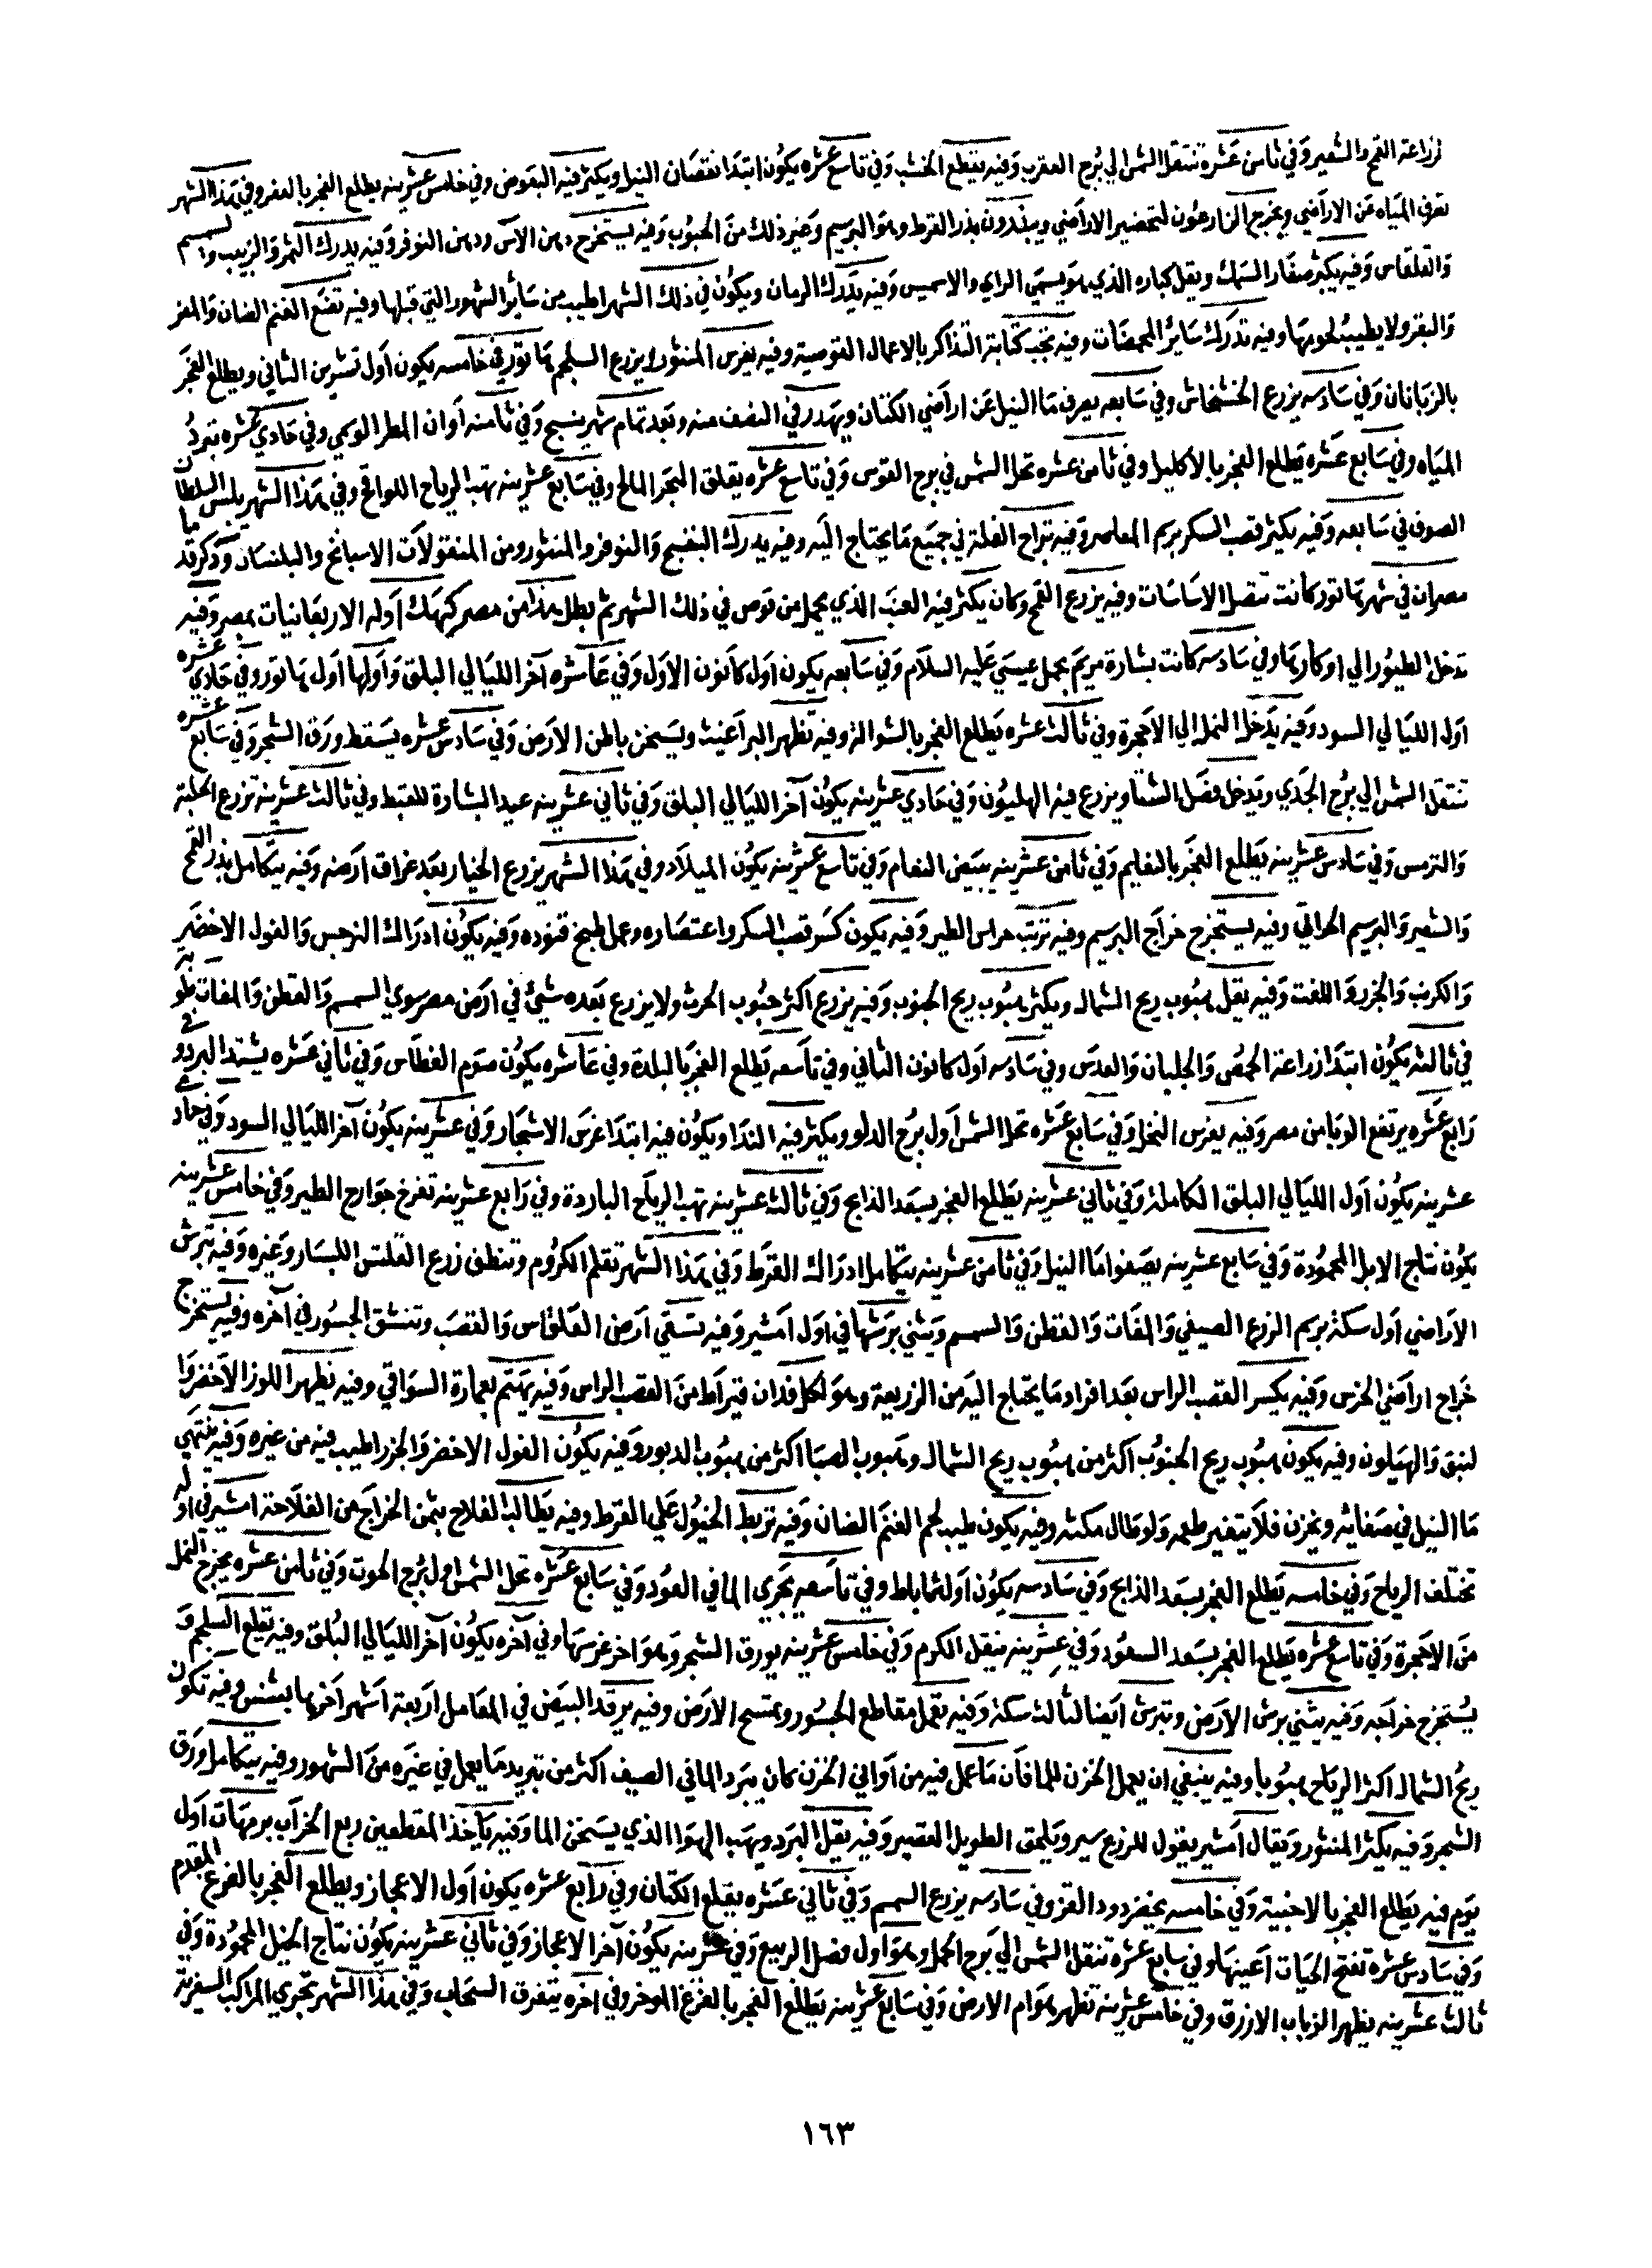 لزراعة القمح والشعير وَفي ثامن عَشره تنتقل الشمس الي بُرج العقرب وَفيه يقطع الخشب وَفي تاسع عَشره يكوُن ابتدَا نقصَان النيل ويكثر فيه البعوض وفي خامس عشرينه يطلع الفجر بالغفر وفي هَذا الشهر
تعرفي الميَاه عَن الاراَضي ويخرج المزارعوُن لتحضير الاراَضي ويبتدون بذر القرط وهو البرسيم وَغير ذلك منَ الحبوُب وَفيه يستخرج دهن الاَس ودهن النوفر وَفيه يدرك التمر وَالزبيب والسمسم
وَالقلقاس وَفيه يكثر صغَار السَمك ويقل كباره الذي هوَ يسميَ الراي والاسميس وَفيه يدَرك الرمان ويكوُن في ذلك الشهر اطيب من سَاير الشهور التي قبلها وفيه تضَع الغنم الضان وَالمعز
وَالبقر ولا يطيب لحومهَا وفيه تدرَك سَاير المحمضَات وفيه يجب كتَابة التذاكر بالاعمال القوصية وفيه يغرس المنثور ويزرع السلجم هَاتور في خامسه يكون اَول تشرين الثاني ويطلع الفجَر
بالزبَانان وَفي سَادسه يزرع الخشخاش وفي سَابعه يصرف مَا النيل عَن اراَضي الكتان ويهَدر في النصف منه وبَعد تمام شهر ينسبخ وَفي ثامنه اَوان المطر الوسمي وفي حَادي عَشره تبردُ
الميَاه وفي سَابع عَشره يَطلع الفجر بالاكليل وفي ثامن عشره تحل الشمس في برج القوس وَفي تاسع عشره يغلق البَحر المالح وفي سَابع عشرينه تهب الرياح اللواقح وفي هَذا الشهر يلبس السلطان
الصوف في سَابعه وَفيه يكثر قصب السكر برسم المعاصر وَفيه تراح الغلة في جميَع مَا يحتاج اليَه وفيه يدرك البنفسج وَالنوفر والمنثور ومن المنقولاَت الاسبانخ والبلنسان وَذكر قد ما
مصر ان في شهر هَاتور كانت تنصل الاسَاسَات وفيه يزرع القمح وَكان يكثر فيه العنبَ الذي يحمل من قوص في ذلك الشهر ثم بطل هَذا من مصر كهَك اَوله الاربعَانيات بمصر وَفيه
تدَخل الطيوُر الي اوكارهَا وفي سَادسه كانت بشارة مريمَ بحمل عيسيَ عَليه السلاَم وَفي سَابعه يكون اَول كاَنون الاَول وَفي عَاشره آخر الليَالي البلق وَاَولها اَول هَاتور وَفي حَادي عشره
اوَل الليَالي السود وَفيه يدَخل النمل الي الاَحجرة وفي ثالث عشره يَطلع الفجر بالشوالة وفيه تظهر البرَاغيث ويسَخن باطن الاَرض وَفي سَادسَ عشره يسَقط ورَق الشجر وَفي سَابع عشره
تنتقل الشمس الي برُج الجَدي ويَدخل فصَل الشتا ويزرع فيه الهليوُن وَفي حَادي عشرينه يكوُن آخر الليَالي البلق وَفي ثاني عشرينه عيد البشارة للقبط وفي ثالث عشرينه تزرع الحلبة
وَالترمس وَفي سَادس عشرينه يَطلع الفجَر بالنعايم وَفي ثامن عشرينه يبيَض النعام وَفي تاسع عشرينه يكوُن الميلاَد وفي هَذا الشهر يزرع الخيار بعَد غراق ارَضه وَفيه يتكامل بذر القمح
وَالشعير وَالبرسيم الحراتي وفيه يستخرج خراَج البرسيم وفيه ترَتب حراس الطير وَفيه يكون كسَر قصب السكر واعتصَاره وعمل طبخ قنوده وَفيه يكوُن ادرَاك النرجس وَالفول الاخضَر
وَالكرنب وَالجزر وَاللفت وَفيه يقل هبوُب ريح الشمال ويكثر هبوُب ريح الجنوب وَفيه يزرع اكثر حبوُب الحرث ولا يزرع بَعده شيئ في ارَض مصر سوي السمسم وَالقطن وَالمقات طوبه
في ثالثه يكوُن ابتَدا زراعة الحمصُ وَالجلبان وَالعدسَ وفي سَادسه اَول كانون الثاني وفي تاَسعه يَطلع الفجَر بالبلدة وفي عَاشره يكوُن صَوم الغطاَس وَفي ثاني عَشره يشتد البرد وفي
رَابع عَشره يرتفع الوبا من مصر وَفيه يغرس النخل وَفي سَابع عَشره تحل الشمس اَول برُج الدلو ويكثر فيه الندَا ويكوُن فيه ابتدَا غرَس الاشجَار وَفي عشرينه يكوُن آخر الليَالي السود وَفي حَادي
عشرينه يَكوُن اَول الليَالي البلق الكاملة وَفي ثاني عشرينه يَطلع الفجر بسَعد الذابح وَفي ثالث عشرينه تهب الرياَح الباردة وفي رَابع عشرينه تفرخ جوَارح الطير وَفي خامس عشرينه
يكوُن نتاج الابل المحموُدة وَفي سَابع عشرينه يصَفوا مَا النيل وَفي ثامن عشرينه يتكامل ادرَاك القرَط وَفي هَذا الشهر تقلم الكروُم وتنظف زرع الغلت من اللبسَار وَغيره وَفيه تبرش
الاَراضي اَول سكة برسم الزرع الصيفي وَالمقَات وَالقطن وَالسمسم ويَثني برَشها في اوَل امَشير وَفيه تسَقي اَرض القَلقاس وَالقصَب وتنشق الجسُور في آخره وفيه يستخرج
خَراج ارَاضي الخرس وَفيه يكسر القصب الراس بعَد افراد مَا يحتاج اليَه من الزريعة وهوَ لكل فدان قيرَاط منَ القصب الراس وَفيه يهَتم بعمارة السوَاقي وفيه تظهر اللوز الاَخضر وَا
لنبق وَالهيَلون وفيه يكوُن هبوُب ريح الجنوُب اكثر من هبوُب ريح الشمال وهبوب الصبَا اكثر من هبوُب الدبور وَفيه يكوُن الفول الاخضر وَالجزر اطيب فيه من غيره وَفيه ينتهَي
مَا النيل في صَفائه ويخزن فلاَ يتغير طعمه وَلو طال مكثه وفيه يكون طيب لحم الغنمَ الضان وَفيه ترَبط الخيوُل علَي القرط وفيه يطَالب الفلاح بثمن الخراَج من الفلاَحة امشير في اوله
تختلف الرياح وَفي خامسه يَطلع الفجر بسَعد الذابح وَفي سَادسه يكوُن اَول شباط وفي تاَسعه يَجري الما في العوُد وَفي سَابع عَشره تحل الشمس اول برُج الحوت وَفي ثامن عشره يخرج النمل
منَ الاَحجرة وَفي تاسع عشره يَطلع الفجر بسَعد السعوُد وَفي عِشرينه ينقل الكرم وَفي خامس عشرينه يورق الشجر وَهوَ اخر غرسهَا وفي آخره يكوُن آخر الليَالي البُلق وفيه يقلع السلجم وَ
يسُتخرج خراَجه وَفيه يثني برش الاَرض وتبرَش ايَضا لثالث سكة وَفيه تعَمل مقاطع الجسُور وتمسح الاَرض وفيه يرقد البيَض في المعَامل اربَعة اشَهر آخرها بشنس وفيه تكون
ريحُ الشمال اكثر الرياَح هبوُبا وفيه ينبغي ان يعمل الخزف للما فاَن مَا عمل فيه من اَواني الخزف كان يبَرد الما في الصيف اكثر من تبريد مَا يعمل في غيَره منَ الشهور وفيه يتكامل ورَق
الشجر وَفيه يكثر المنثور وَيقال اَمشير يقول للزرع سير ويَلحق الطويل القصير وَفيه يقل البَرد ويهَب الهوَا الذي يسَخن الما وَفيه يَاخذ المقطعين ربع الخرَاج برمهَات اَول
يَوم فيه يَطلع الفجر بالاخبية وَفي خامسه يحضر دود القز وفي سَادسه يزرع السمسم وَفي ثاني عَشره يقلع الكتان وفي رَابع عشره يكون اَول الاعجاز ويطلع الفجر بالفرع المقدم
وَفي سَادس عشره تفتح الحيَات اَعينهَا وفي سَابع عشره تنتقل الشمس الي بَرج الحمل وهوَ اول فصل الربيع وَفي عشرينه يكوُن آخر الاعجاز وَفي ثاني عشرينه يكوُن نتاج الخيل المحموُدة وَفي
ثالث عشرينه يظهر الذباب الازرق وفي خامس عشرينه تظهر هوَام الارض وَفي سَابع عشرينه يَطلع الفجر بالفرغ الموخر وفي آخره يتفرق السحاب وَفي هَذا الشهر تجري المراكب السفرية
١٦٣